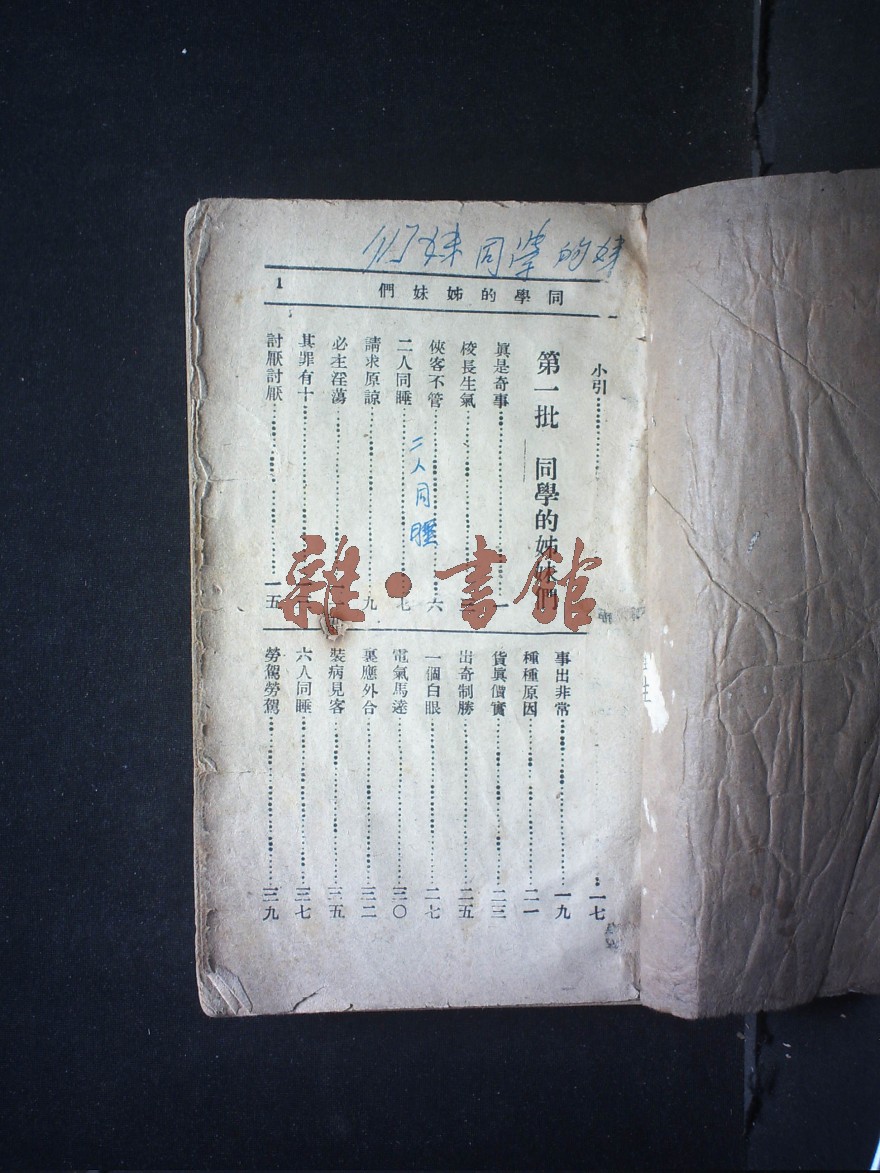 妹 同學 的妹
同學的姊妹們
1
小引
第一批 同學的姊妹們
眞是奇事 一
校長生氣
俠客不管 六
二人同睡 七
二人同睡
請求原諒 九
必主淫蕩
其罪有十
討厭討厭 一五
一七
事出非常 一九
種種原因 二一
貨眞價實 二三
出奇制勝 二五
一個白眼 二七
電氣馬達 三〇
裏應外合 三二
裝病見客 三五
六人同睡 三七
勞駕勞駕 三九
雜·書館